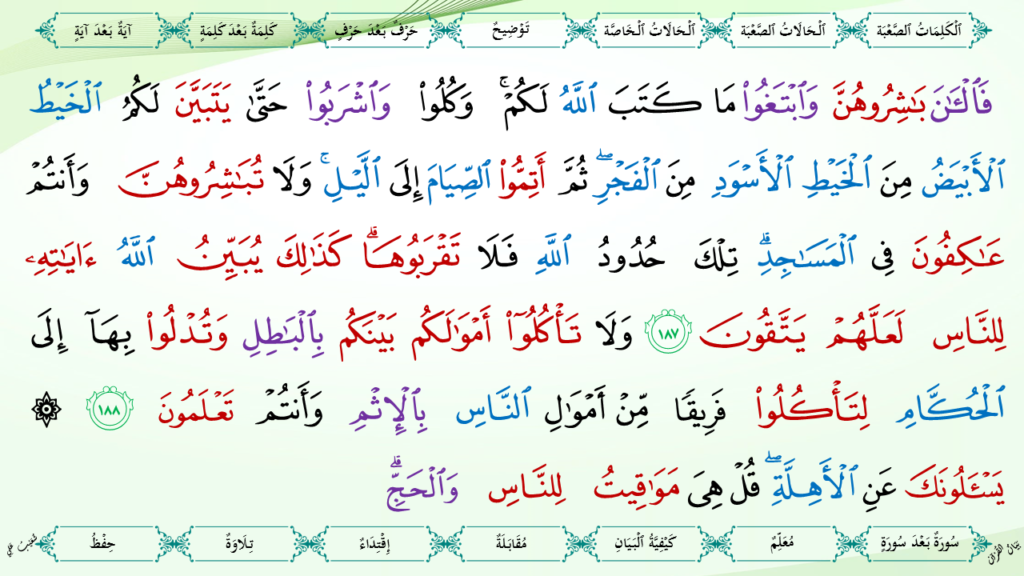 ٱلْكَلِمَاتُ ٱلصَّعْبَة ٱلْحَالَاتُ ٱلصَّعْبَة ٱلْحَالَاتُ ٱلْخَاصَّة تَوْضِيحٌ حَرْفٌ بَعْدَ حَرْفٍ كَلِمَةٌ بَعْدَ كَلِمَةٍ آيَةٌ بَعْدَ آيَةٍ
فَٱلْـَٔـٰنَ بَـٰشِرُوهُنَّ وَٱبْتَغُوا۟ مَا كَتَبَ ٱللَّهُ لَكُمْ ۚ وَكُلُوا۟ وَٱشْرَبُوا۟ حَتَّىٰ يَتَبَيَّنَ لَكُمُ ٱلْخَيْطُ
ٱلْأَبْيَضُ مِنَ ٱلْخَيْطِ ٱلْأَسْوَدِ مِنَ ٱلْفَجْرِ ۖ ثُمَّ أَتِمُّوا۟ ٱلصِّيَامَ إِلَى ٱلَّيْلِ ۚ وَلَا تُبَـٰشِرُوهُنَّ وَأَنتُمْ
عَـٰكِفُونَ فِى ٱلْمَسَـٰجِدِ ۗ تِلْكَ حُدُودُ ٱللَّهِ فَلَا تَقْرَبُوهَا ۗ كَذَٰلِكَ يُبَيِّنُ ٱللَّهُ ءَايَـٰتِهِۦ
لِلنَّاسِ لَعَلَّهُمْ يَتَّقُونَ ١٨٧ وَلَا تَأْكُلُوٓا۟ أَمْوَٰلَكُم بَيْنَكُم بِٱلْبَـٰطِلِ وَتُدْلُوا۟ بِهَآ إِلَى
ٱلْحُكَّامِ لِتَأْكُلُوا۟ فَرِيقًا مِّنْ أَمْوَٰلِ ٱلنَّاسِ بِٱلْإِثْمِ وَأَنتُمْ تَعْلَمُونَ ١٨٨ ۞
يَسْـَٔلُونَكَ عَنِ ٱلْأَهِلَّةِ ۖ قُلْ هِىَ مَوَٰقِيتُ لِلنَّاسِ وَٱلْحَجِّ ۗ
سُورَةٌ بَعْدَ سُورَةٍ مُعَلِّمٌ كَيْفِيَّةُ ٱلْبَيَانِ مُقَابَلَةٌ إِقْتِدَاءٌ تِلَاوَةٌ حِفْظٌ
بَيَانُ القُرآن